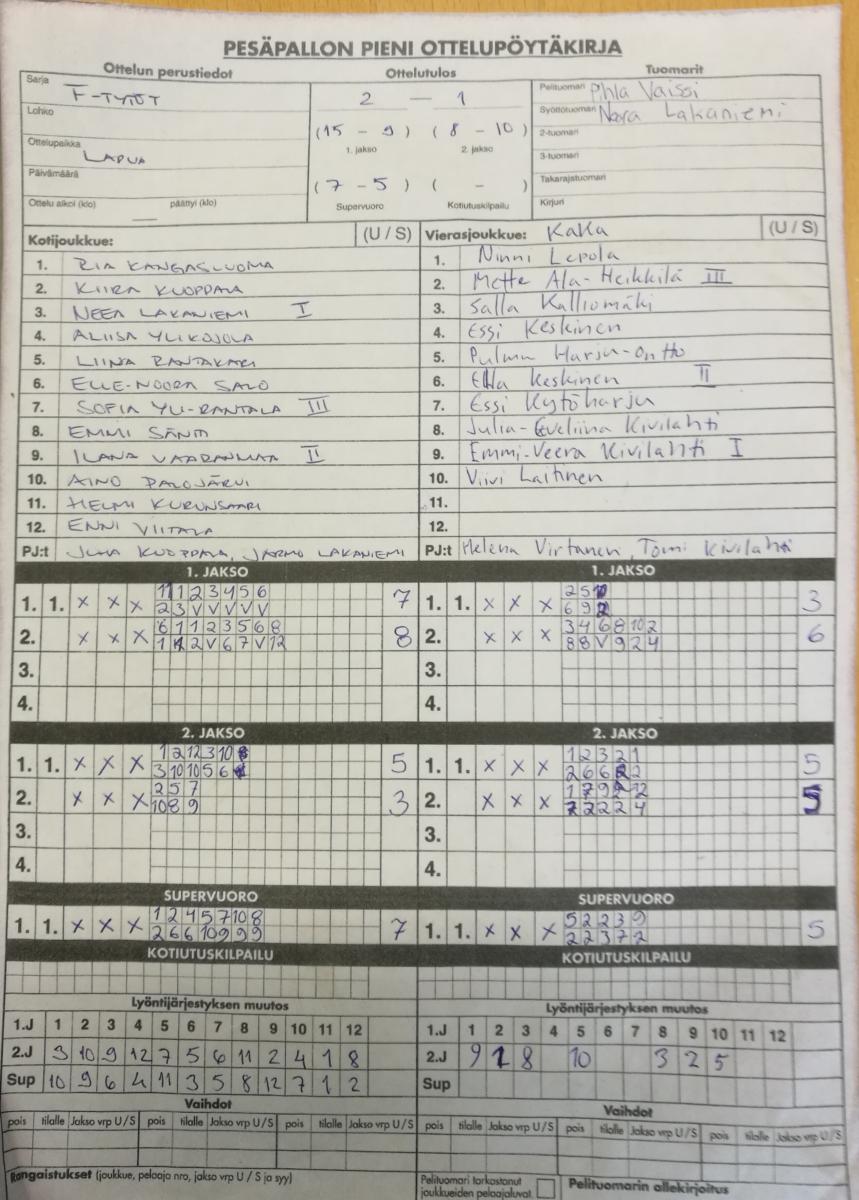 PESÄPALLON PIENI OTTELUPÖYTÄKIRJA
Ottelun perustiedot Ottelutulos Tuomarit
Sarja F-TYTÖT 2 — 1 Pelituomari Vaissi
Lohko Syöttötuomari Nora Lakaniemi
(15 - 9) (8 - 10) 2-tuomari
Ottelupaikka LAPUA 1. jakso 2. jakso 3-tuomari
Päivämäärä (7 - 5) ( - ) Takarajatuomari
Ottelu alkoi (klo) päättyi (klo) Supervuoro Kotiutuskilpailu Kirjuri
Kotijoukkue: (U / S) Vierasjoukkue: KaKa (U / S)
1. RIA KANGASLUOMA 1. Ninni Lepola
2. KIIRA KUOPPALA 2. Mette Ala-Heikkilä III
3. NEEA LAKANIEMI I 3. Salla Kalliomäki
4. ALIISA YLIKOJOLA 4. Essi Keskinen
5. LIINA RANTAKARI 5. Pulmu Harju-Ontto
6. ELLE-NOORA SALO 6. Ella Keskinen II
7. SOFIA YLI-RANTALA III 7. Essi Kytöharju
8. EMMI SÄNTI 8. Julia-Eveliina Kivilahti
9. ILANA VAARANMAA II 9. Emmi-Veera Kivilahti I
10. AINO PALOJÄRVI 10. Viivi Laitinen
11. HELMI KURUNSAARI 11.
12. ENNI VIITALA 12.
PJ:t JUHA KUOPPALA, JARMO LAKANIEMI PJ:t Helena Virtanen, Tomi Kivilahti
1. JAKSO 1. JAKSO
1. 1. x x x 11 1 2 3 4 5 6 7 1. 1. x x x 2 5 10 3
2 3 V V V V V 6 9 2
2. x x x 6 1 1 2 3 5 6 8 8 2. x x x 3 4 6 8 10 2 6
1 2 V 6 7 V 12 8 8 V 9 2 4
3. 3.
4. 4.
2. JAKSO 2. JAKSO
1. 1. x x x 1 2 12 3 10 5 1. 1. x x x 1 2 3 2 1 5
3 10 10 5 6 2 6 6 2 2
2. x x x 2 5 7 3 2. x x x 1 7 9 12 5
10 8 9 2 2 2 2 4
3. 3.
4. 4.
SUPERVUORO SUPERVUORO
1. 1. x x x 1 2 4 5 7 10 8 7 1. 1. x x x 5 2 2 3 9 5
2 6 6 10 9 9 9 2 2 3 7 2
KOTIUTUSKILPAILU KOTIUTUSKILPAILU
Lyöntijärjestyksen muutos Lyöntijärjestyksen muutos
1.J 1 2 3 4 5 6 7 8 9 10 11 12 1.J 1 2 3 4 5 6 7 8 9 10 11 12
2.J 3 10 9 12 7 5 6 11 2 4 1 8 2.J 9 1 8 10 3 2 5
Sup 10 9 6 4 11 3 5 8 12 7 1 2 Sup
Vaihdot Vaihdot
pois tilalle Jakso vrp U / S pois tilalle Jakso vrp U / S pois tilalle Jakso vrp U / S pois tilalle Jakso vrp U / S pois tilalle Jakso vrp U / S pois tilalle Jakso vrp U / S
Rangaistukset (joukkue, pelaaja nro, jakso vrp U / S ja syy) Pelituomari tarkastanut Pelituomarin allekirjoitus
joukkueiden pelaajaluvat